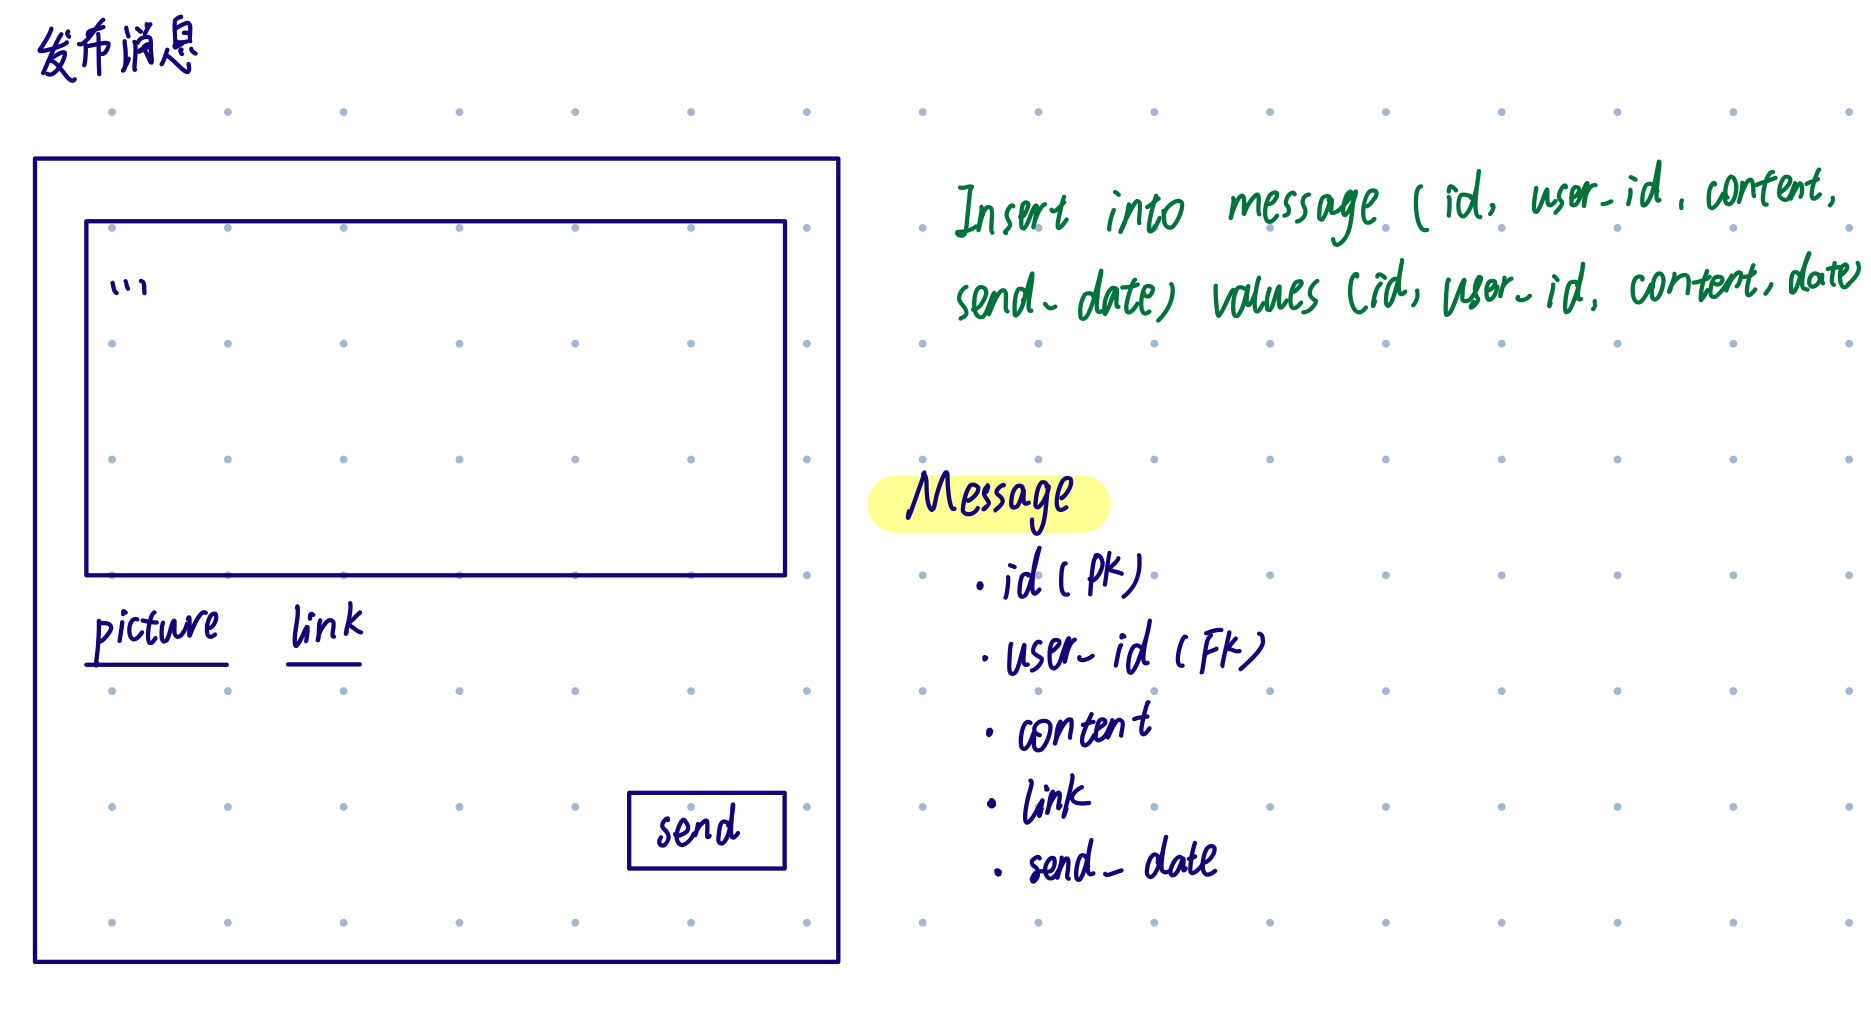 发布消息
...
picture link
send
Insert into message (id, user_id, content,
send_date) values (id, user_id, content, date)
Message
· id (PK)
· user_id (FK)
· content
· link
· send_date